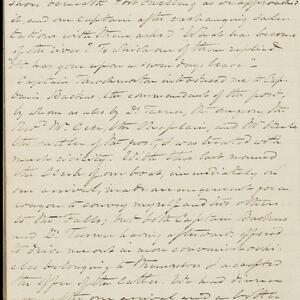 shore beneath Fort Snelling as we approached
it, and our Captain after exchanging salu-
tations with them asked "What has become
of the river?" To which one of them replied
"It has gone upon a two days leave"
Captain Throckmorton introduced me to Cap-
tain Backus, the commandant of the post,
by whom as also by
Rev. Mr. Gear, the Chaplain, and Mr. Steele
the sutler of the post, I was treated with
much civility. With this last named
the Clerk of our boat, immediately on
our arrival, made arrangement for a
wagon to convey myself and two others
to the Falls; but both Captain Backus
and having afterward offered
to drive me out in more convenient vehi-
cles belonging to themselves I accepted
the offer of the latter. We had dinner
our arrival and a